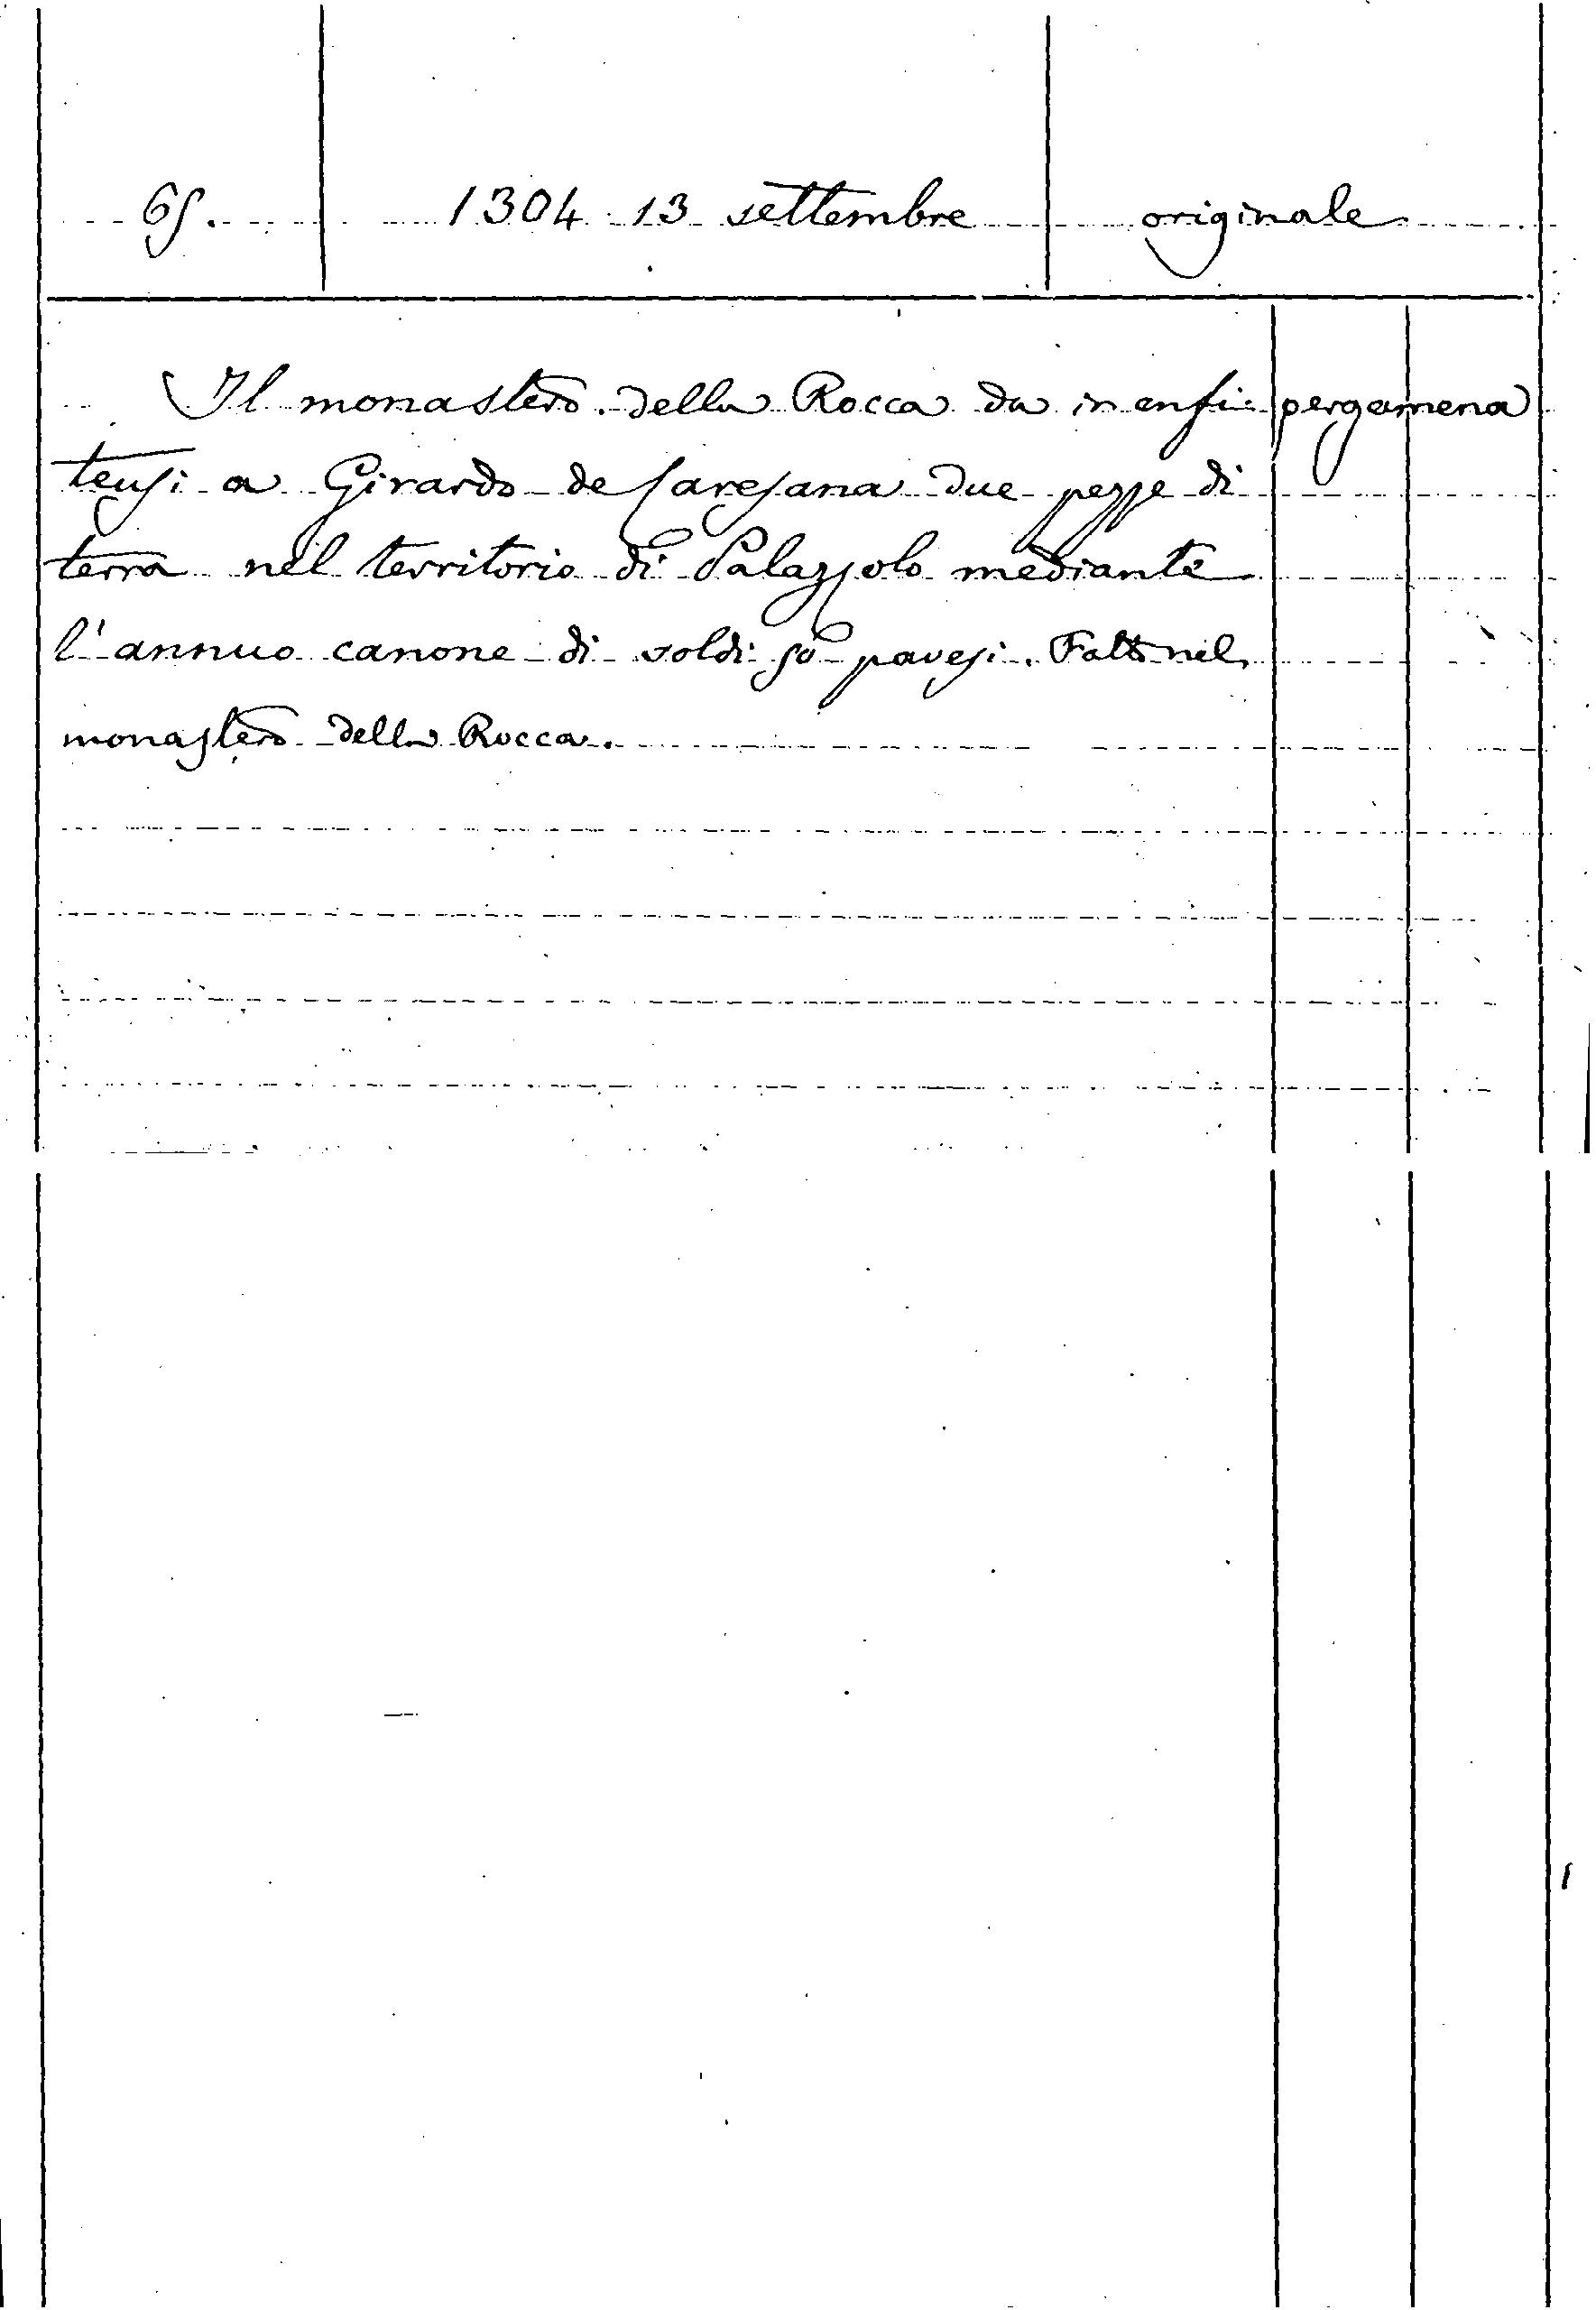 65. 1304 13 settembre originale
Il monastero della Rocca da in enfi- pergamena
teusi a Girardo de Caresana due pezze di
terra nel territorio di Palazzolo mediante
l'annuo canone di soldi 50 pavesi. Fatto nel
monastero della Rocca.